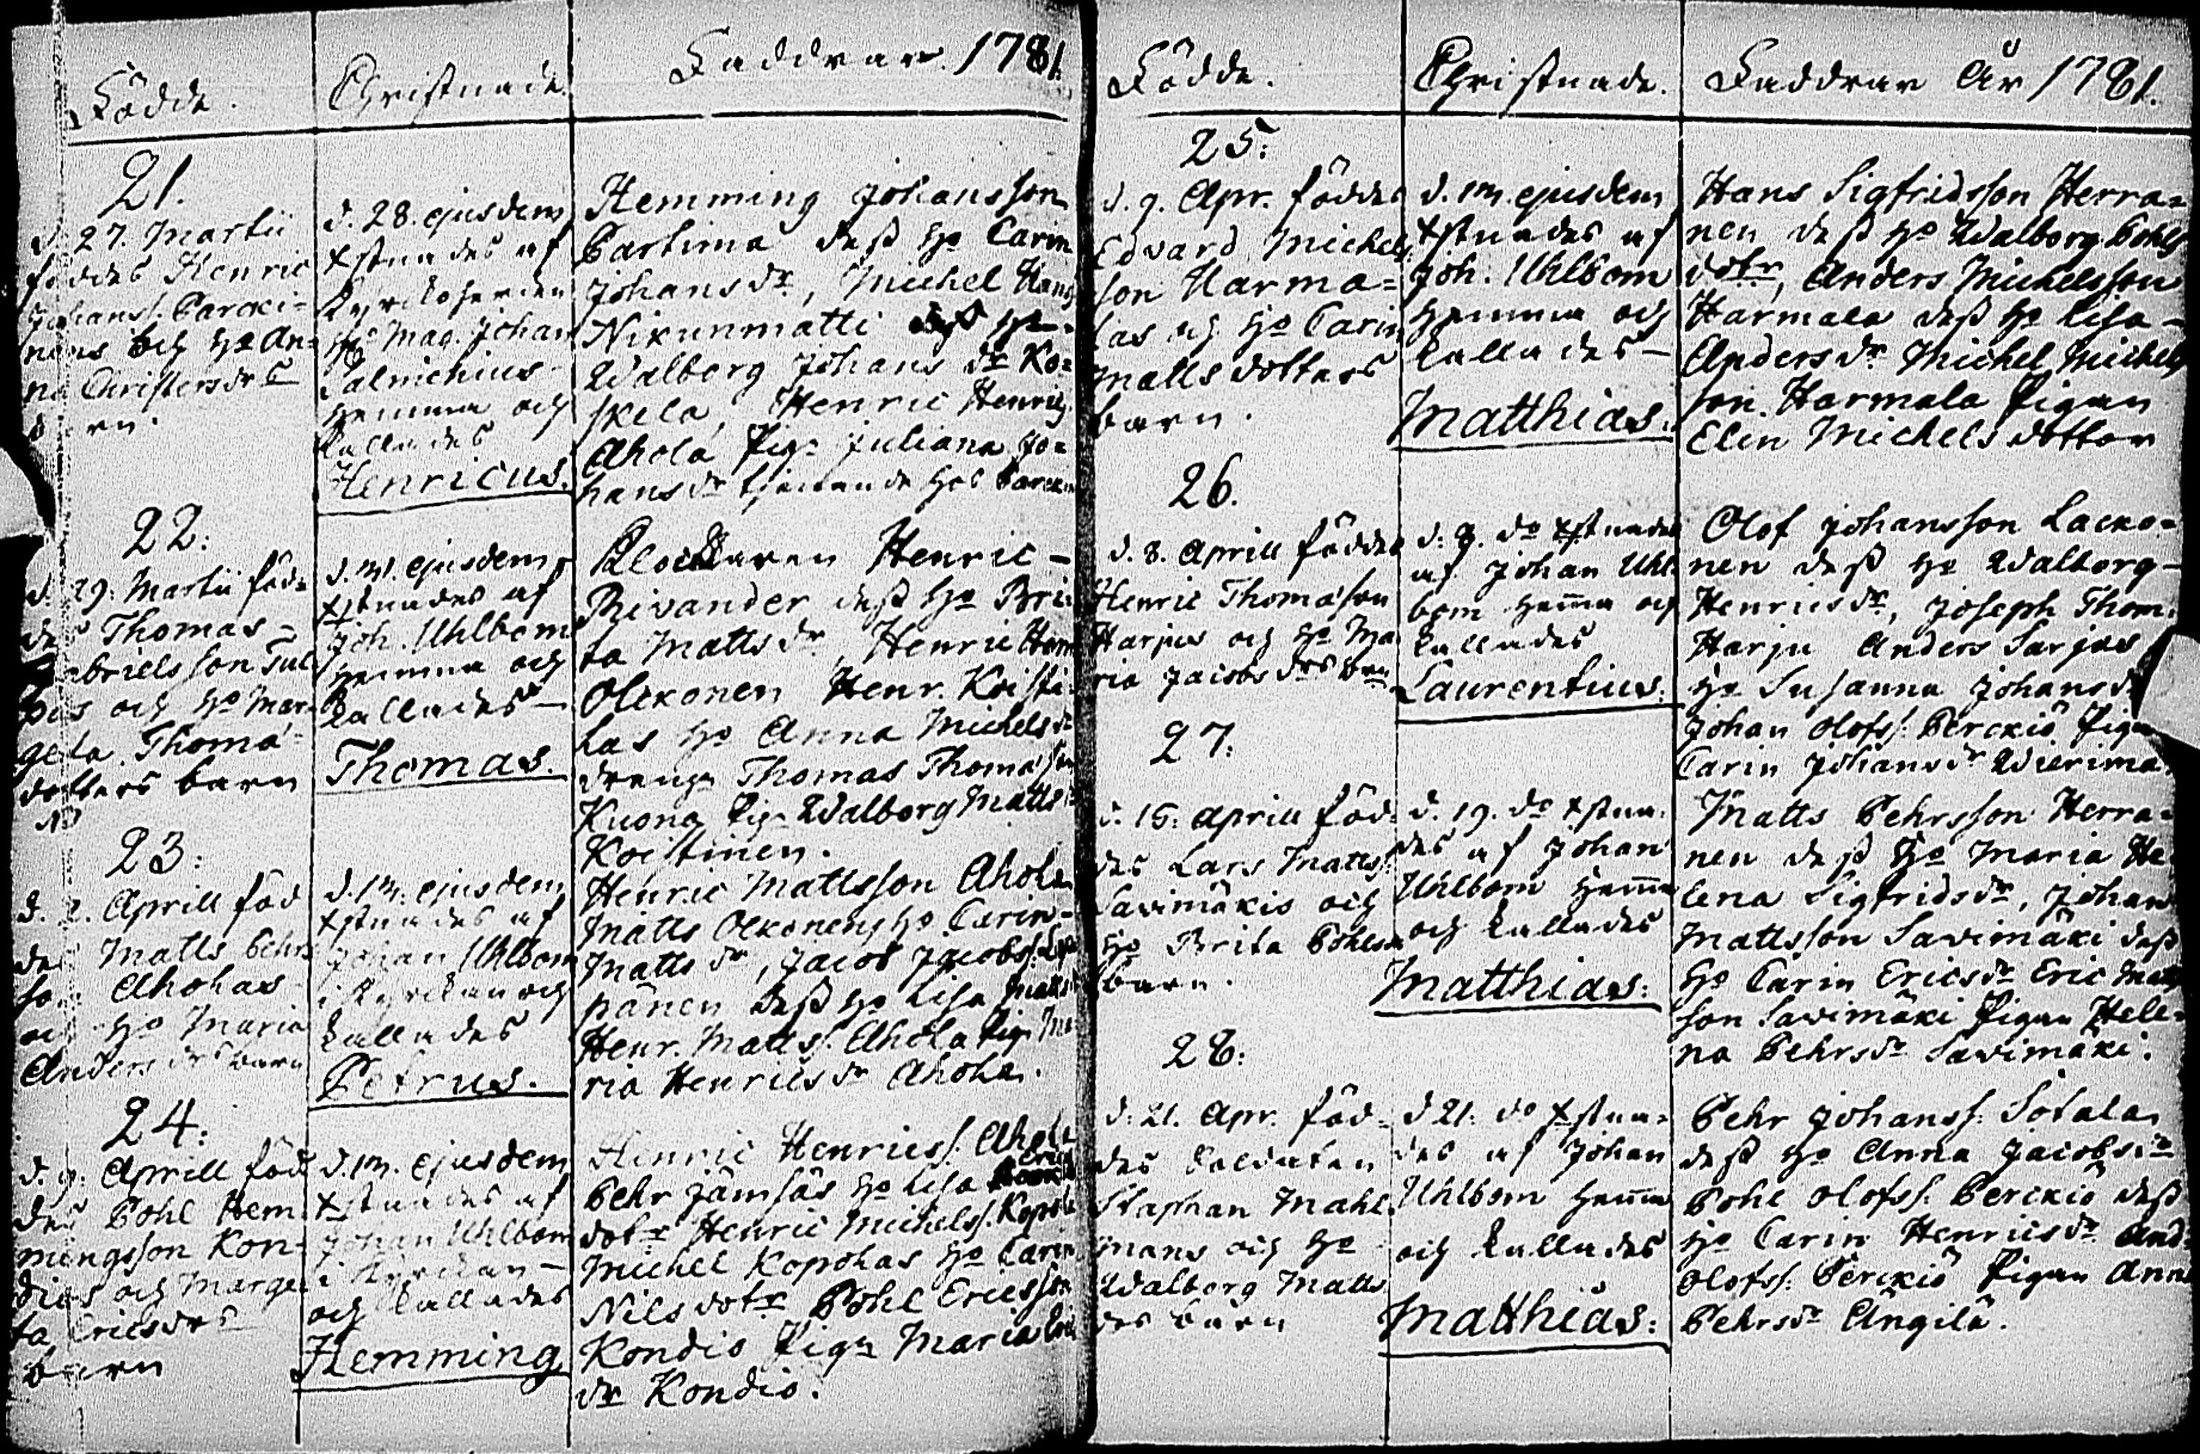 Födde.
Christnade.
Faddrar. 1781.
21.
d. 27. Martii
föddes Henric
Johanss. Parcki-
nens och Ho An-
na Christersdrs
d. 28. ejusdem
xstnades af
Kyrckoherden
Hr Mag. Johan
Salmenius
hemma och
kallades
Henricus.
Hemming Johansson
Partima dess Ho Carin
Johansdr, Michel Hans
Nikunmatti dess Ho
Walborg Johans dr Ko-
skela, Henric Henrics.
Ahola Pig. Juliana Jo-
hansdr tjenande hos
22.
d. 29. Martii föd-
des Thomas
och Ho Mar-
geta Thomæ-
dotters barn
ejusdem
xstnades af
Joh. Uhlbom
hemma och
kallades
Thomas.
Klockaren Henric
Rivander dess Ho Bri-
ta Mattsdr, Henric
Olckonen Henr. Koisti-
las Ho Anna Michelsdr
dreng. Thomas Thomæson
Kuona Pig. Walborg Matts
Koistinen.
23.
d. 2. Aprill föd
des Matts Pehrs
son Aholas
och Ho Maria
Anders drs barn
ejusdem
xstnades af
Johan Uhlbom
i Kyrckan och
kallades
Petrus.
Henric Mattsson Ahola
Matts Olckonens Ho Carin
Matts dr, Jacob Jacobss.
pänen dess Ho Lisa Matts
Henr. Matts. Ahola Pig. Ma-
ria Henrics dr Ahola.
24.
d. 9. Aprill föd
des Pohl Hem-
mingsson Kon-
dios och Marge-
ta Ericsdrs
barn
ejusdem
xstnades af
Johan Uhlbom
i Kyrckan
och kallades
Hemming
Henric Henricss. Ahola
Pehr Jämsäs Ho Lisa
dotr Henric Michelss. Kopola
Michel Kopolas Ho Carin
Nilsdotr Pohl Ericsson
Kondio Pig. Maria Eric
dr Kondio.
Födde.
Christnade.
Faddrar År 1781.
25.
d. 9. Apr. föddes
Edvard Michels-
son Harma-
las och Ho Carin
Matts dotters
barn.
ejusdem
xstnades af
Joh. Uhlbom
hemma och
kallades
Matthias.
Hans Sigfridsson Herra-
nen dess Ho Walborg Pohls
dotr, Anders Michelsson
Harmala dess Ho Lisa
Andersdr Michel Michels
son. Harmala Pigan
Elin Michels dotter
26.
d. 8. Aprill föddes
Henric Thomæson
Harjus och Ho Ma
ria Jacobs drs
d. 9. do xstnades
af Johan Uhl-
bom hema och
kallades
Laurentius.
Olof Johansson Lacko-
nen dess Ho Walborg
Henricsdr, Joseph Thom.
Harju Anders Sarjas
Ho Susanna Johansdr
Johan Olofs. Perckiö Pigan
Carin Johansdr Wierima
27.
d. 15. Aprill föd-
des Lars Matts.
Savimäkis och
Ho Brita Pohls
barn.
d. 19. do xstna-
des af Johan
Uhlbom hema
och kallades
Matthias.
Matts Pehrsson Herra-
nen dess Ho Maria He-
lena Sigfridsdr, Johan
Mattsson Savimäki dess
Ho Carin Ericsdr Eric Matts
son Savimäki Pigan Hele-
na Pehrsdr Savimäki.
28.
d. 21. Apr. föd-
des Soldaten
Staphan Mahl-
mans och Ho
Walborg Matts
drs barn
d 21. do xstna-
des af Johan
Uhlbom hema
och kallades
Matthias.
Pehr Johanss. Sotala
dess Ho Anna Jacobsdr
Pohl Olofss. Perckiö dess
Ho Carin Henricsdr And.
Olofss. Perckiö Pigan Anna
Pehrsdr Ängilä.